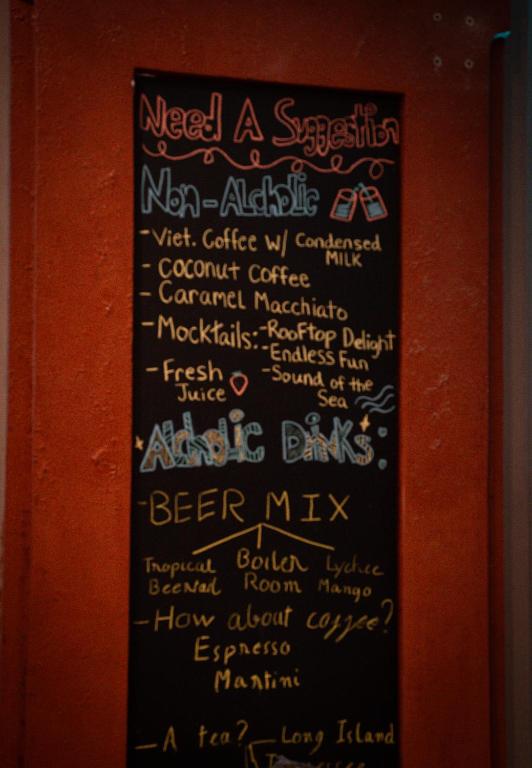 Need A Suggestion
Non-Alcholic
-Viet. Coffee w/ Condensed
MILK
- Coconut Coffee
- Caramel Macchiato
- Mocktails: -Rooftop Delight
-Endless Fun
- Fresh Juice
-Sound of the Sea
Alcholic Drinks:
-BEER MIX
Tropical Boiler Lychee
Room Mango
-How about coffee?
Espresso
Martini
- A tea? Long Island